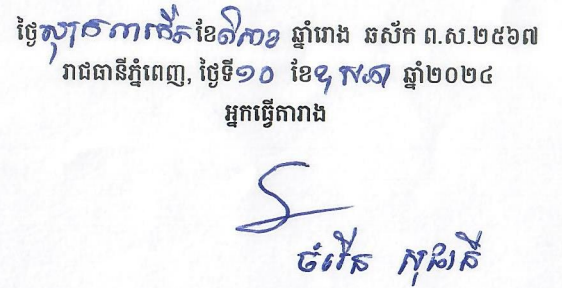 ថ្ងៃសុក្រ ៣កើត ខែពិសាខ ឆ្នាំរោង ឆស័ក ព.ស.២៥៦៧
រាជធានីភ្នំពេញ, ថ្ងៃទី១០ ខែឧសភា ឆ្នាំ២០២៤
អ្នកធ្វើតារាង
ចំរើន